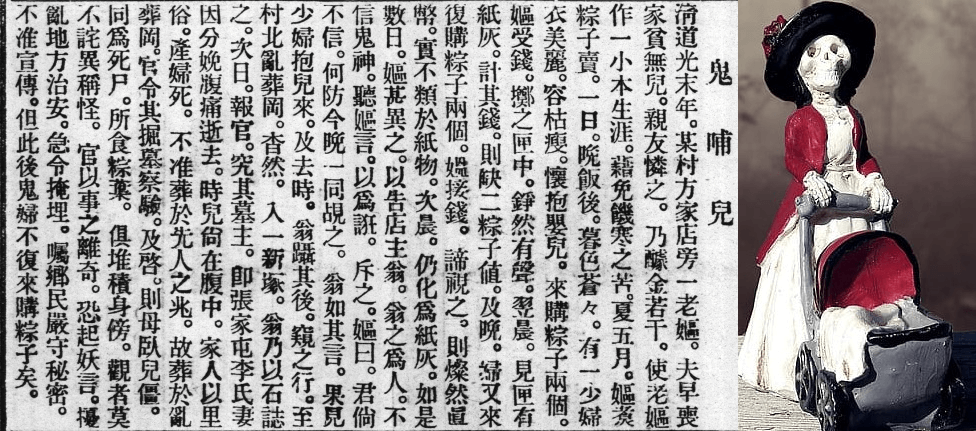 鬼哺兒
淸道光末年。某村方家店旁一老嫗。夫早喪
家貧無兒。親友憐之。乃醵金若干。使老嫗
作一小本生涯。藉免饑寒之苦。夏五月。嫗蒸
粽子賣。一日。晩飯後。暮色蒼々。有一少婦
衣美麗。容枯瘦。懷抱嬰兒。來購粽子兩個。
嫗受錢。擲之匣中。錚然有聲。翌晨。見匣有
紙灰。計其錢。則缺二粽子値。及晩。婦又來
復購粽子兩個。嫗接錢。諦視之。則燦然眞
幣。實不類於紙物。次晨。仍化爲紙灰。如是
數日。嫗甚異之。以告店主翁。翁之爲人。不
信鬼神。聽嫗言。以爲誑。斥之。嫗曰。君倘
不信。何防今晩一同覘之。翁如其言。果見
少婦抱兒來。及去時。翁躡其後。窺之行。至
村北亂葬岡。杳然。入一新塚。翁乃以石誌
之。次日。報官。究其墓主。卽張家屯李氏妻
因分娩腹痛逝去。時兒尙在腹中。家人以里
俗。產婦死。不准葬於先人之兆。故葬於亂
葬岡。官令其掘墓察驗。及啓。則母臥兒僵。
同爲死尸。所食粽葉。俱堆積身傍。觀者莫
不詫異稱怪。官以事之離奇。恐起妖言。擾
亂地方治安。急令掩埋。囑鄉民嚴守秘密。
不准宣傳。但此後鬼婦不復來購粽子矣。